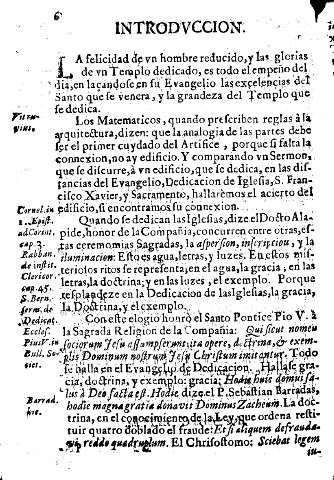 6
INTRODVCCION.
LA felicidad de vn hombre reducido, y las glorias
de vn Templo dedicado, es todo el empeño del
dia, en laçandose en su Evangelio las excelencias del
Santo que se venera, y la grandeza del Templo que
se dedica.
Los Matematicos, quando prescriben reglas à la
arquitectura, dizen: que la analogia de las partes debe
ser el primer cuydado del Artifice, porque si falta la
connexion, no ay edificio. Y comparando vn Sermon,
que se discurre, à vn edificio, que se dedica, en las dis-
tancias del Evangelio, Dedicacion de Iglesia, S. Fran-
cisco Xavier, y Sacramento, hallarèmos el acierto del
edificio, si encontramos su connexion.
Quando se dedican las Iglesias, dize el Docto Ala-
pide, honor de la Compañia, concurren entre otras, es-
tas ceremomias Sagradas, la aspersion, inscription, y la
iluminacion: Esto es agua, letras, y luzes. En estos mis-
teriolos ritos se representa, en el agua, la gracia; en las
letras, la doctrina; y en las luzes, el exemplo. Porque
resplandeze en la Dedicacion de las Iglesias, la gracia,
la Doctrina, y el exemplo.
Con este elogio honro el Santo Pontice Pio V. à
la Sagrada Religion de la Compañia: Qui sicut nomen
sociorum Jesu assumpserunt, ita opere, doctrina, & exem-
plis Dominum nostrum Jesu Christum imitantur. Todo
se halla en el Evangelio de Dedicacion. Hallase gra-
cia, doctrina, y exemplo: gracia; Hodie huic domui sa-
lus à Deo facta est. Hodie, dize el P. Sebastian Barradas,
hodie magna gratia dona vit Dominus Zacheum. La doc-
trina, en el conocimiento de la Ley, que ordena resti-
tuir quatro doblado el fraude: Et si aliquem defrauda-
vi, reddo quadruplum. El Chrisostomo: Sciebat legem
Vitru-
vius.
Cornel. in
1. Epist.
ad Corint.
cap. 3.
Rabban.
de instit.
Clericor.
cap. 45.
S. Bern.
serm. de
Dedicat.
Eccles.
Pius V. in
Bull. So-
ciet.
Barrad.
hic.